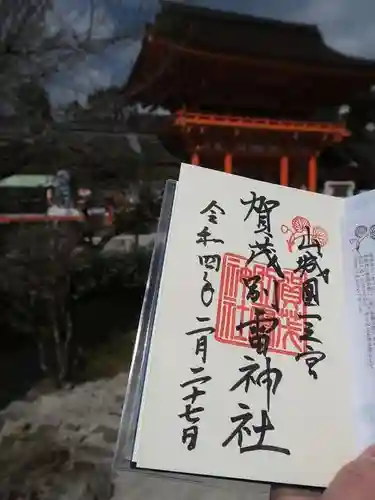 山城國一之宮
賀茂別雷神社
令和四年二月二十七日